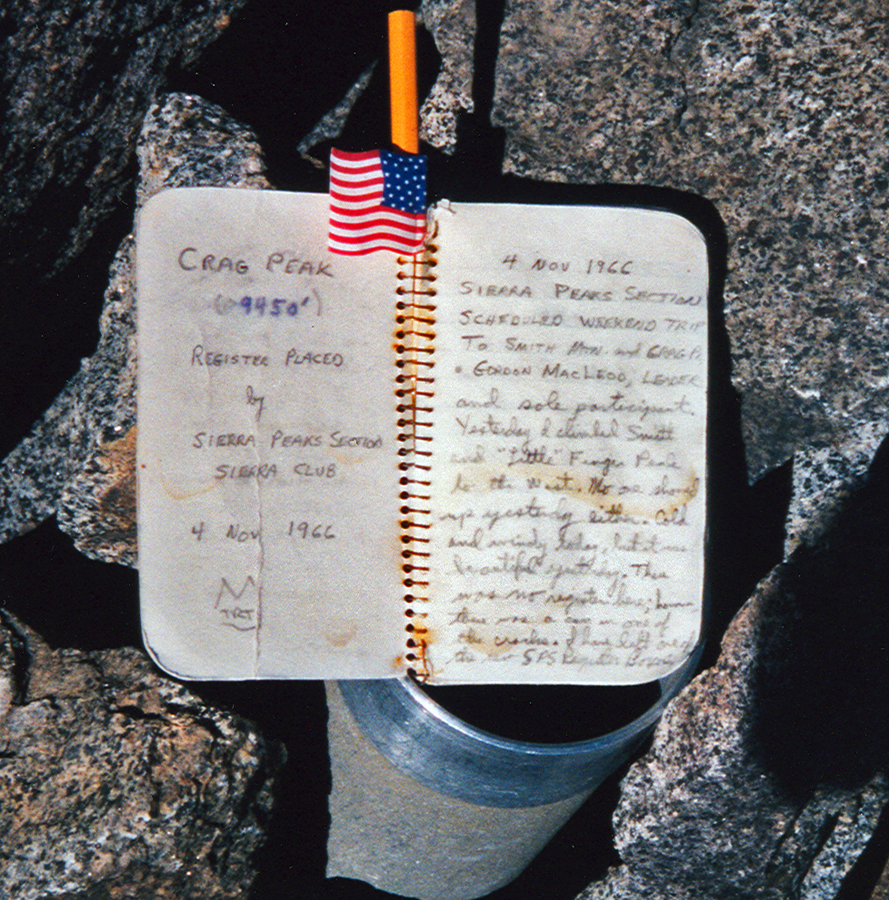 CRAG PEAK
(9450')
REGISTER PLACED
by
SIERRA PEAKS SECTION
SIERRA CLUB
4 NOV 1966
TRT
4 NOV 1966
SIERRA PEAKS SECTION
SCHEDULED WEEKEND TRIP
TO SMITH MTN. and CRAG P.
GORDON MACLEOD, LEADER
and sole participant.
Yesterday I climbed Smith
and "Little" Finger Peak
to the West. No one showed
up yesterday either. Cold
and windy today, but it was
beautiful yesterday. There
was no register here;
there was a can in one of
the cracks. I have left one of
the new SPS Register Boxes